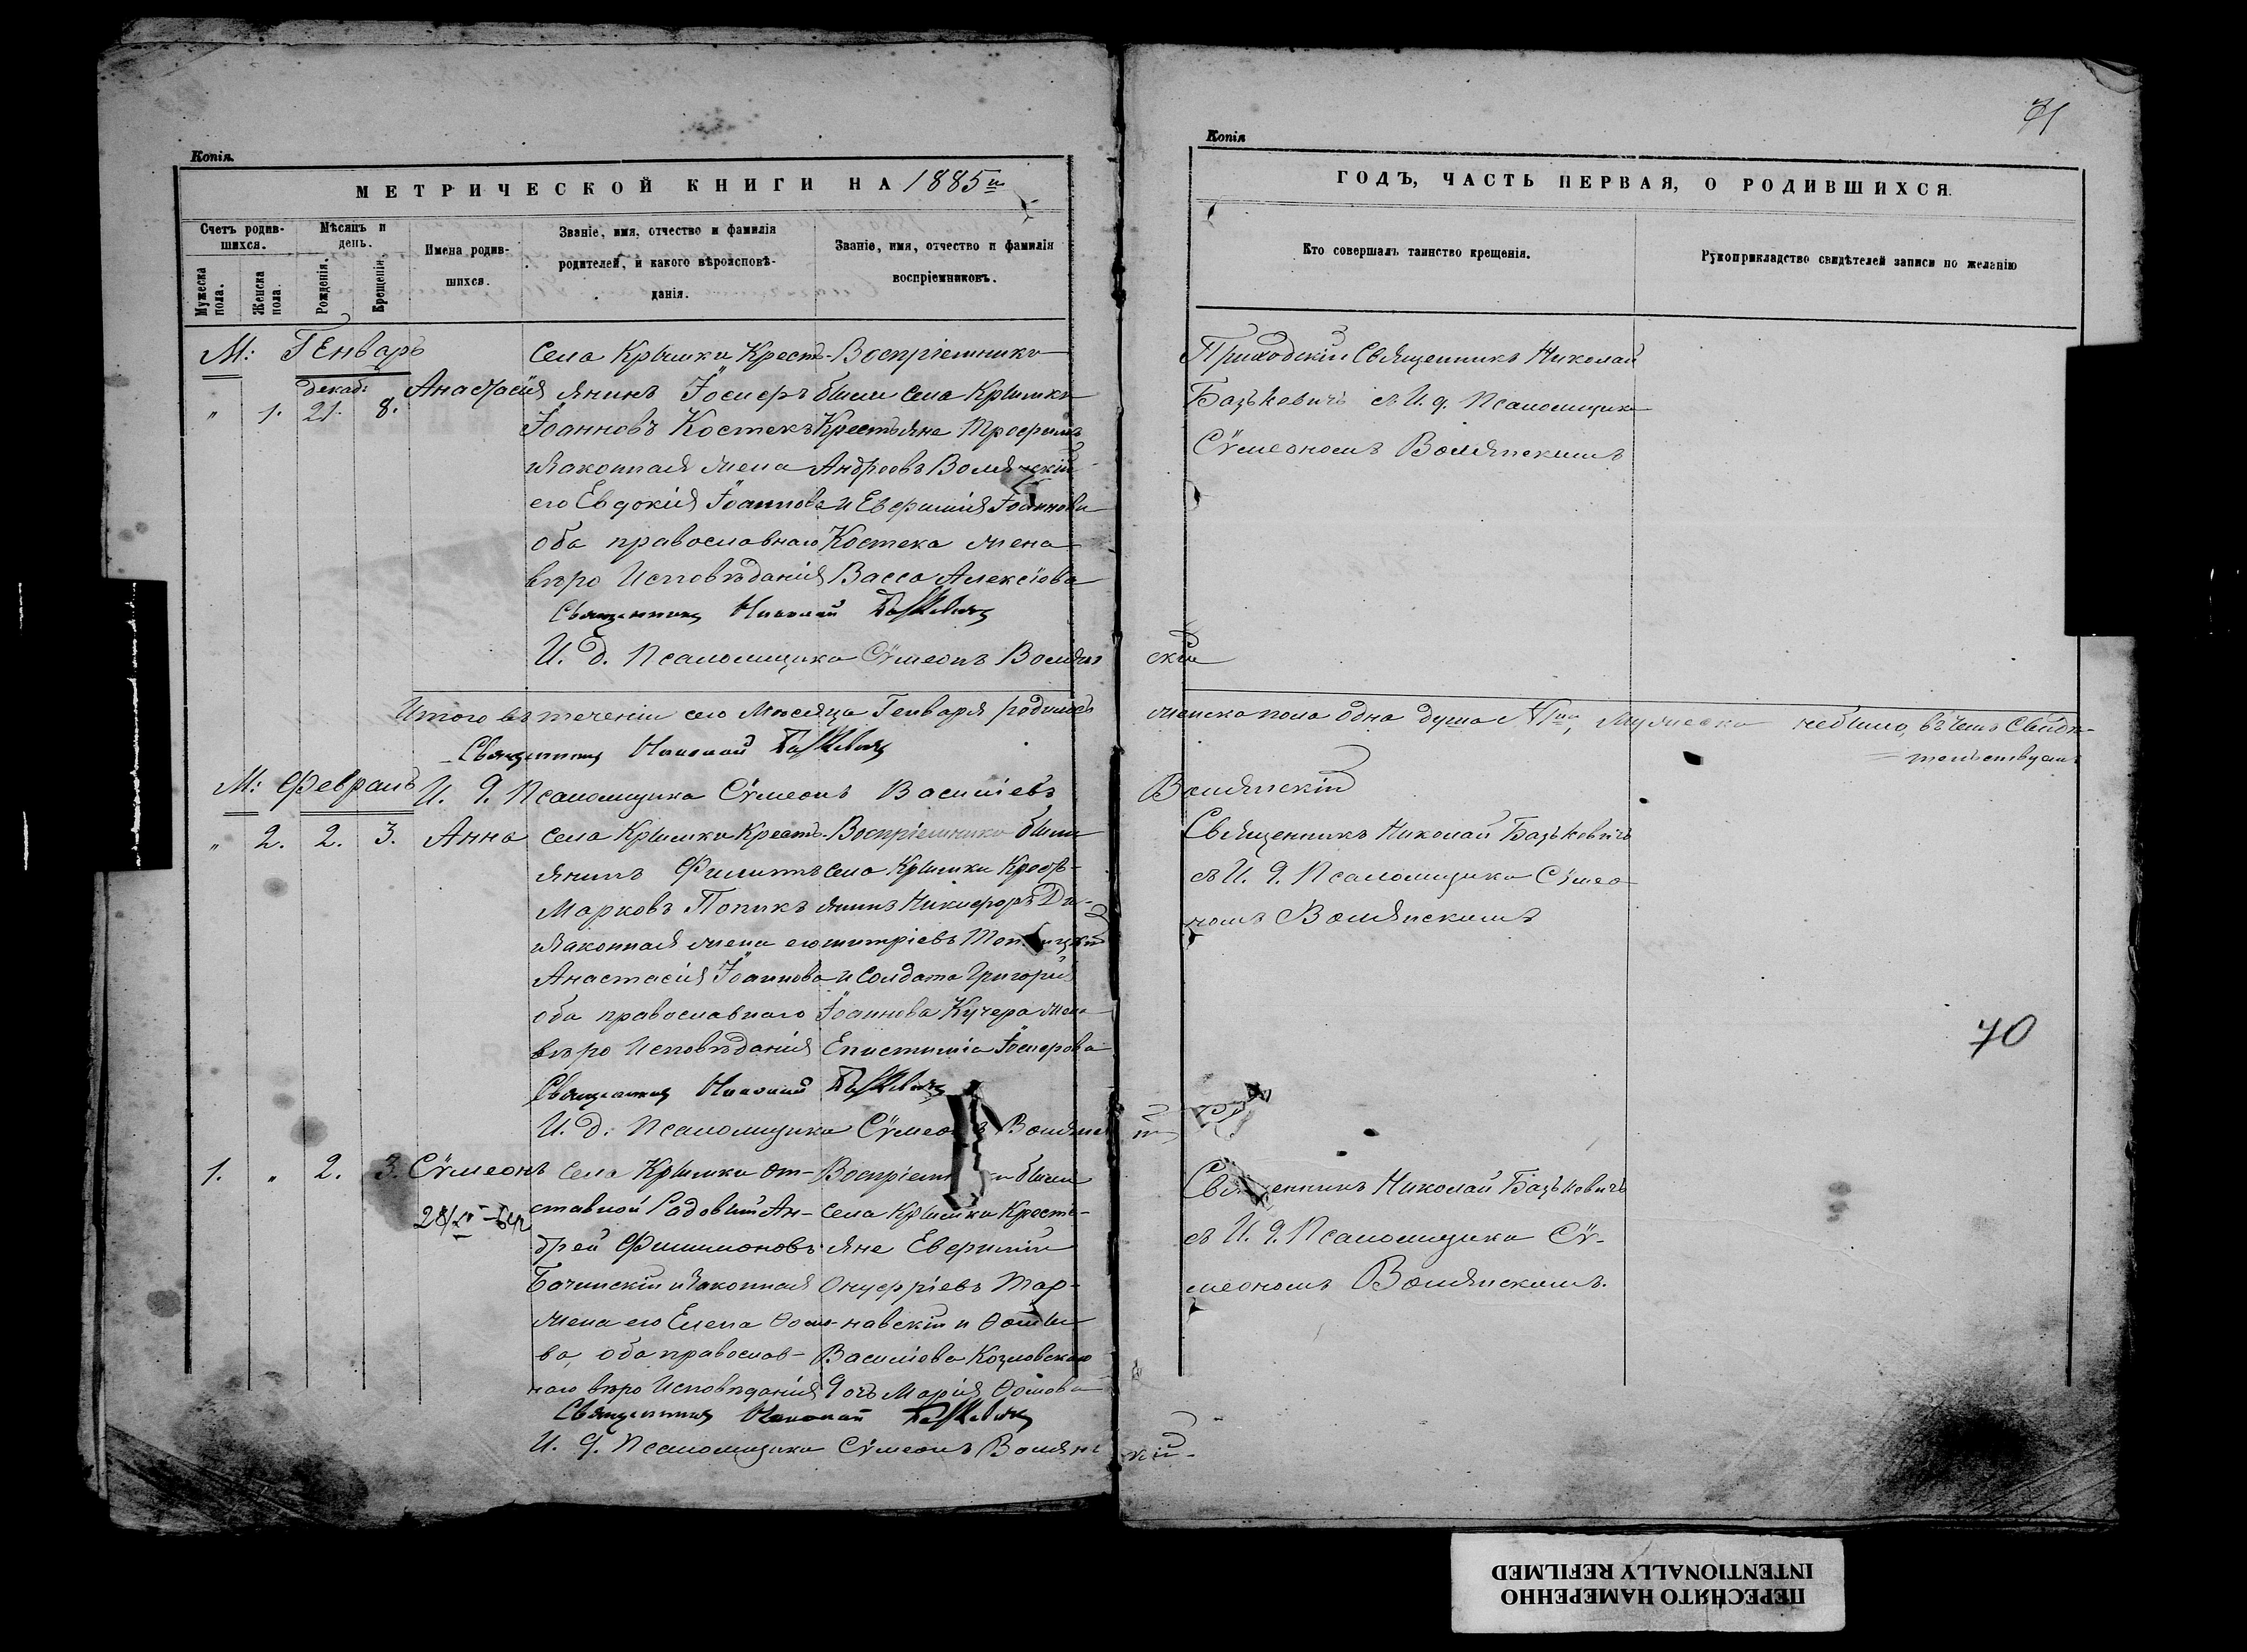 Копія.
МЕТРИЧЕСКОЙ КНИГИ НА 1885й
Счетъ родив-
шихся.
Мужеска
пола.
Женска
пола.
Мѣсяцъ и
день.
Рожденія.
Крещенія.
Имена родив-
шихся.
Званіе, имя, отчество и фамилія
родителей, и какого вѣроисповѣ-
данія.
Званіе, имя, отчество и фамилія
воспріемниковъ.
М: Генварь
декаб:
" 1. 21. 8.
Анастасія
Села Крымки Кресть-
янинъ Іосифъ
Іоанновъ Костекъ
и законная жена
его Евдокія Іоаннова
оба православнаго
вѣро Исповѣданія
Воспріемники
были села Крымки
Крестьяне Трофимъ
Андреевъ Волянскій
и Евфимія Іоаннова
Костека жена
Васса Алексіева
Священникъ Николай Базькевичъ
И. д. Псаломщика Сѵмеонъ Волян
скій
Итого въ теченіи сего Мѣсяца Генваря родилось
женска пола одна душа, Мужеска небыло, въ чемъ Свидѣ-
тельствуемъ
Священникъ Николай Базькевичъ
М: Февраль
И. д. Псаломщика Сѵмеонъ Василіевъ
Волянскій
" 2. 2. 3.
Анна
Села Крымки Кресть-
янинъ Филиппъ
Марковъ Попикъ
и законная жена его
Анастасія Іоаннова
оба православнаго
вѣро Исповѣданія
Воспріемники были
села Крымки Кресть-
янинъ Никифоръ Ди-
митріевъ
и Солдата Григорія
Іоаннова Кучера жена
Епистимія Іосифова
Священникъ Николай Базькевичъ
И. д. Псаломщика Сѵмеонъ Волянс
1. " 2. 3.
Сѵмеонъ
Села Крымки от-
ставной Рядовый Ан-
дрей Филимоновъ
Бачинскій и законная
жена его Елена Ѳоми-
ва, оба православ-
наго вѣро Исповѣданія
Воспріемники были
Села Крымки Кресть-
яне Евфимій
Онуфріевъ Тар-
навскій и Ѳомы
Василіева Козловскаго
дочь Марія Ѳомова
Священникъ Николай Базькевичъ
И. д. Псаломщика Сѵмеонъ Волянс
кій.
Копія
71
ГОДЪ, ЧАСТЬ ПЕРВАЯ, О РОДИВШИХСЯ.
Кто совершалъ таинство крещенія.
Рукоприкладство свидѣтелей записи по желанію
Приходскій Священникъ Николай
Базькевичъ съ И. д. Псаломщика
Сѵмеономъ Волянскимъ
Священникъ Николай Базькевичъ
съ И. д. Псаломщика Сѵмео-
номъ Волянскимъ
70
Священникъ Николай Базькевичъ
съ И. д. Псаломщика Сѵ-
меономъ Волянскимъ.
ПЕРЕСНЯТО НАМЕРЕННО
INTENTIONALLY REFILMED